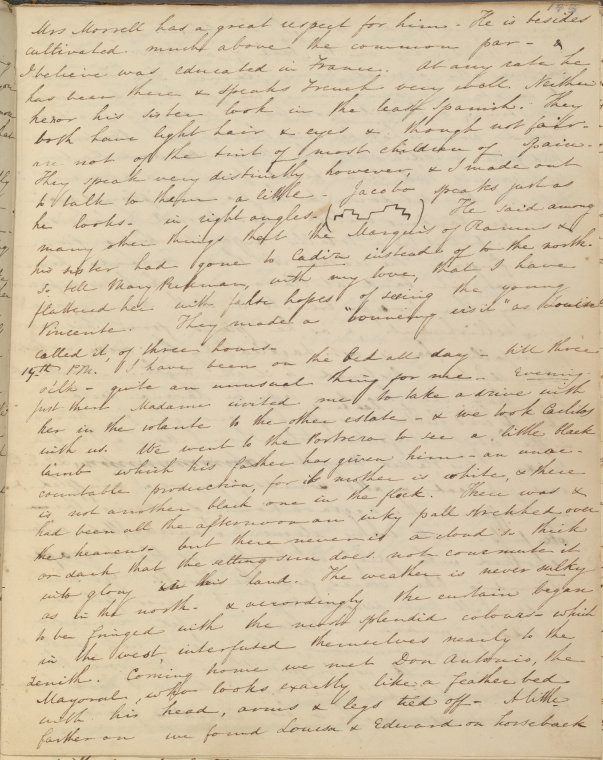 Mrs Morrell has a great respect for him - He is besides
cultivated much above the common par - &
I believe was educated in France. At any rate he
has been there & speaks French very well. Neither
he nor his sister look in the least Spanish. They
both have light hair & eyes & though not fair -
are not of the tint of most children of Spain -
They speak very distinctly however, & I made out
to talk to them a little - Jacobo speaks just as
he looks - in right angles - ( ) He said among
many other things that the Marquis of Ramus &
his sister had gone to Cadiz instead of to the north -
So tell Mary , with my love, that I have
flattered her with false hopes of seeing the young
Vincente. They made a " visit" as Louisa
called it, of three hours -
19th P.M. I have been on the bed all day - till three
- quite an unusual thing for me - Evening -
Just then Madame invited me to take a drive with
her in the volante to the other estate - & we took Carlitos
with us. We went to the Portrero to see a little black
lamb which his father has given him - an unac-
countable production, for its mother is white, & there
is not another black one in the flock. There was &
had been all the afternoon an inky pall stretched over
the heavens - but there never is a cloud so thick
or dark that the setting sun does not commute it
into glory in this land. The weather is never sulky
as in the north - & accordingly the curtain began
to be fringed with the most splendid colours - which
in the west, interfused themselves nearly to the
zenith. Coming home we met Don Antonio, the
Mayoral, who looks exactly like a feather bed
with his head, arms & legs tied off - A little
farther on we found Louisa & Edward on horseback